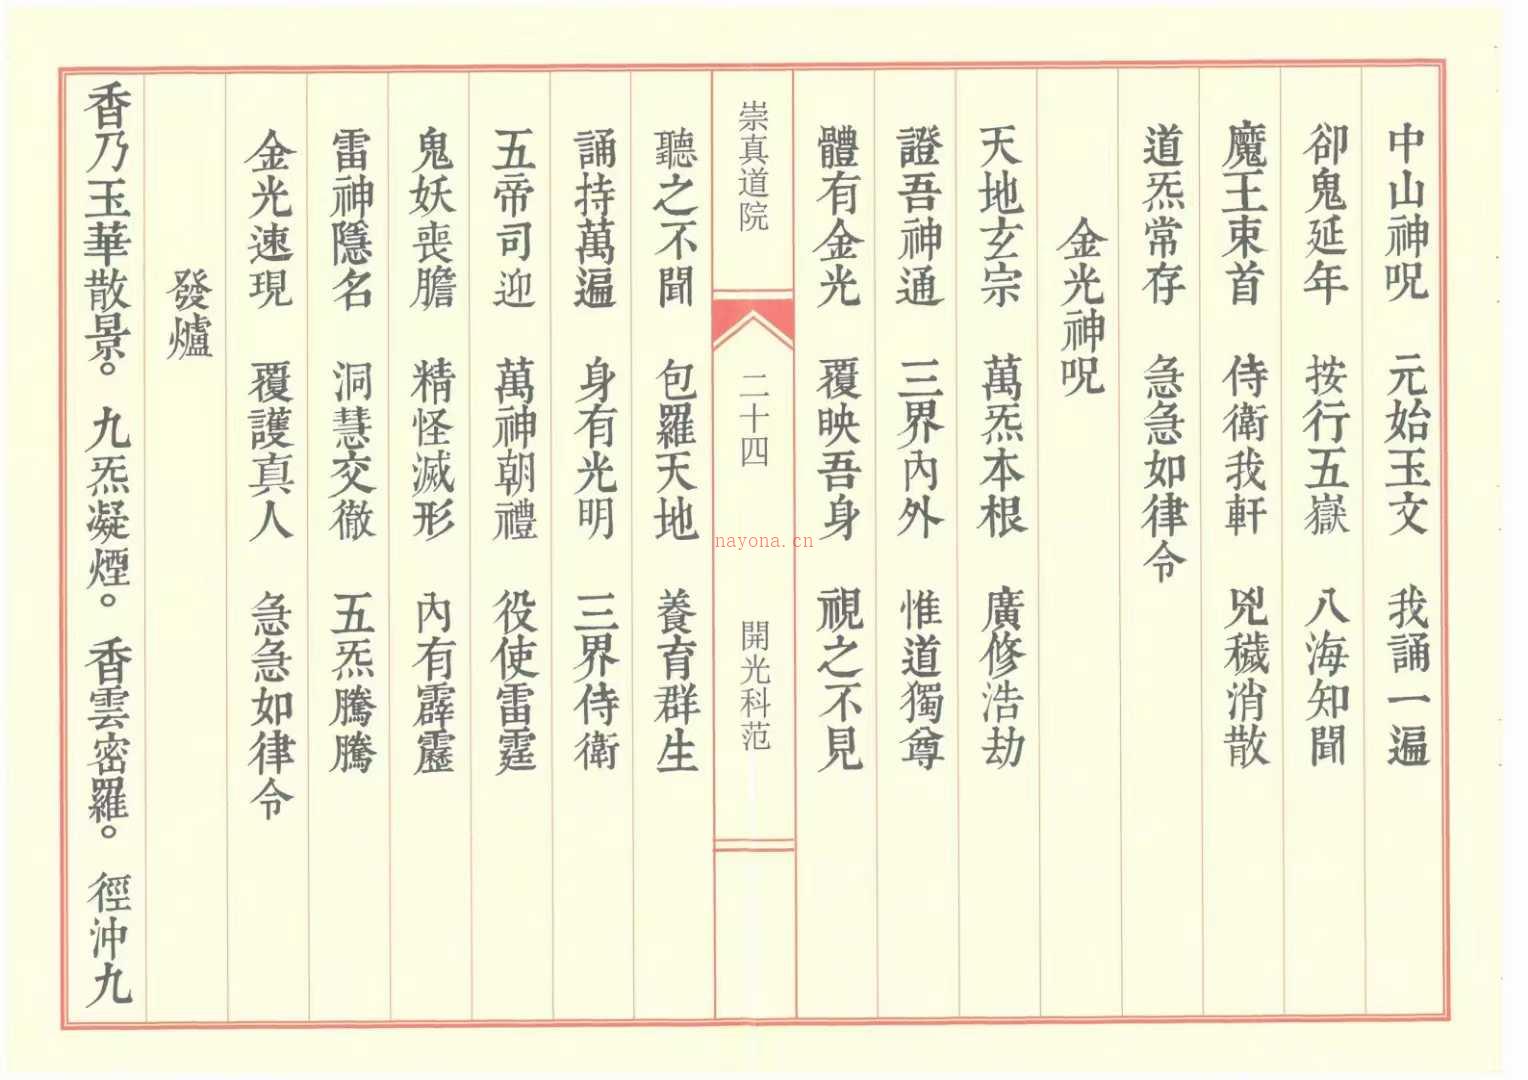 中山神呪　元始玉文　我誦一遍
卻鬼延年　按行五嶽　八海知聞
魔王束首　侍衛我軒　兇穢消散
道炁常存　急急如律令
金光神呪
天地玄宗　萬炁本根　廣修浩劫
證吾神通　三界內外　惟道獨尊
體有金光　覆映吾身　視之不見
崇真道院　二十四　開光科范
聽之不聞　包羅天地　養育群生
誦持萬遍　身有光明　三界侍衛
五帝司迎　萬神朝禮　役使雷霆
鬼妖喪膽　精怪滅形　內有霹靂
雷神隱名　洞慧交徹　五炁騰騰
金光速現　覆護真人　急急如律令
發爐
香乃玉華散景。九炁凝煙。香雲密羅。徑沖九
nayona.cn